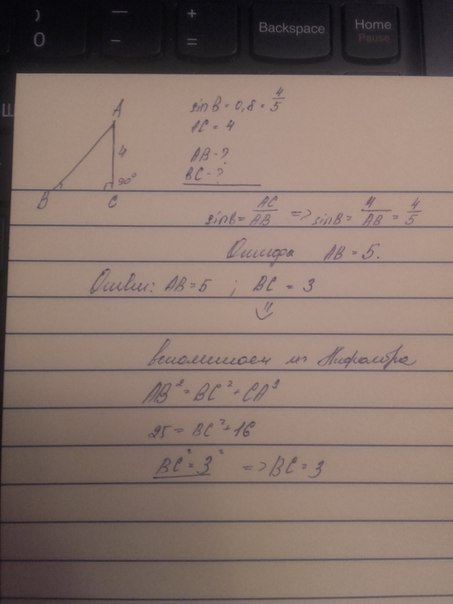 )
0
—
-
+
=
Backspace
Home
Pause
Щ
A
4
B
90°
C
sinB = 0,8 = 4/5
AC = 4
AB - ?
BC - ?
sinB = AC/AB => sinB = 4/AB = 4/5
Отсюда AB = 5.
Ответ: AB = 5 ; BC = 3
вспоминаем из Пифагора
AB² = BC² + CA²
25 = BC² + 16
BC² = 3² => BC = 3